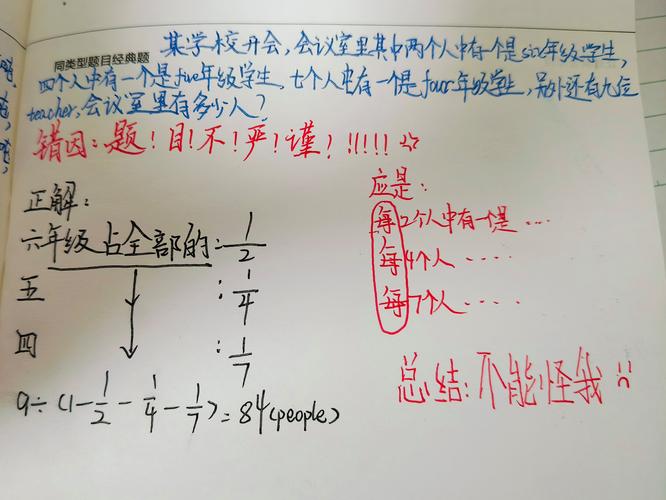 同类型题目经典题
某学校开会,会议室里其中两个人中有一个是six年级学生,
四个人中有一个是five年级学生,七个人中有一个是four年级学生,另外还有九位
teacher,会议室里有多少人?
错因:题!目!不!严!谨!!!!!!
正解:
六年级占全部的:1/2
五 :1/4
四 :1/7
9÷(1-1/2-1/4-1/7)=84(people)
应是:
每2个人中有一个是……
每4个人……
每7个人……
总结:不能怪我